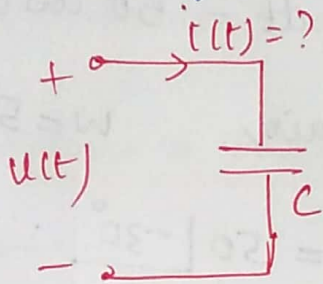 i(t) = ?
+
u(t)
C
-